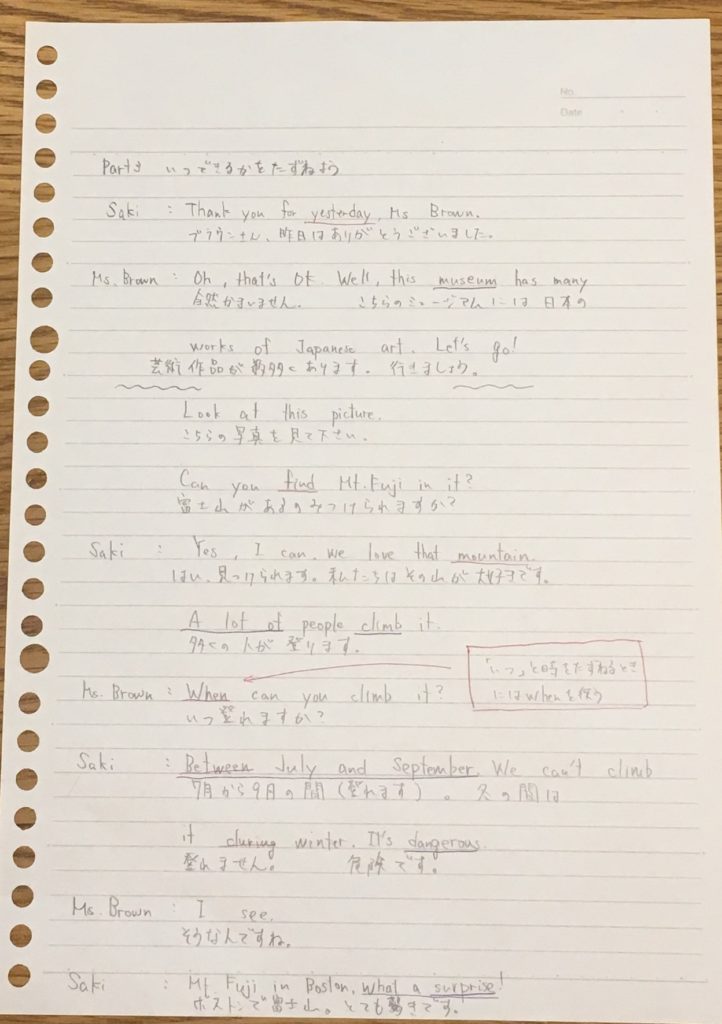 No.
Date
Part3 いつできるかをたずねよう
Saki : Thank you for yesterday, Ms Brown.
ブラウンさん、昨日はありがとうございました。
Ms. Brown : Oh, that's OK. Well, this museum has many
全然かまいません。 こちらのミュージアムには 日本の
works of Japanese art. Let's go!
芸術作品が数多くあります。 行きましょう。
Look at this picture.
こちらの写真を見て下さい。
Can you find Mt. Fuji in it?
富士山があるのみつけられますか?
Saki : Yes, I can. we love that mountain.
はい、見つけられます。私たちはその山が大好きです。
A lot of people climb it.
多くの人が登ります。
「いつ」と時をたずねるとき
にはwhenを使う
Ms. Brown : When can you climb it?
いつ登れますか?
Saki : Between July and September. We can't climb
7月から9月の間(登れます)。 冬の間は
it during winter. It's dangerous.
登れません。 危険です。
Ms. Brown : I see.
そうなんですね。
Saki : Mt. Fuji in Boston, what a surprise!
ボストンで富士山。とても驚きです。